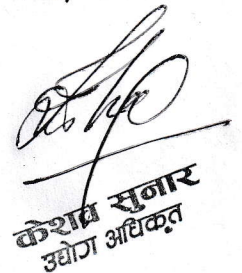 केशव सुनार
उद्योग अधिकृत